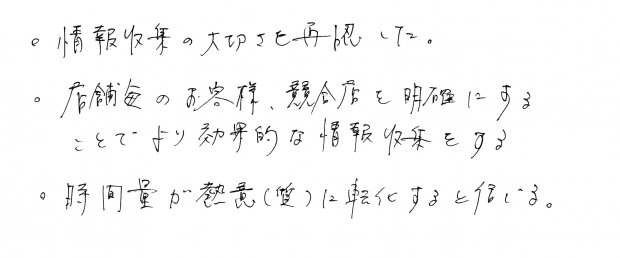 。情報収集の大切さを再認した。
。店舗毎のお客様、競合店を明確にする
ことでより効果的な情報収集をする
。時間量が熱意(質)に転化すると信じる。